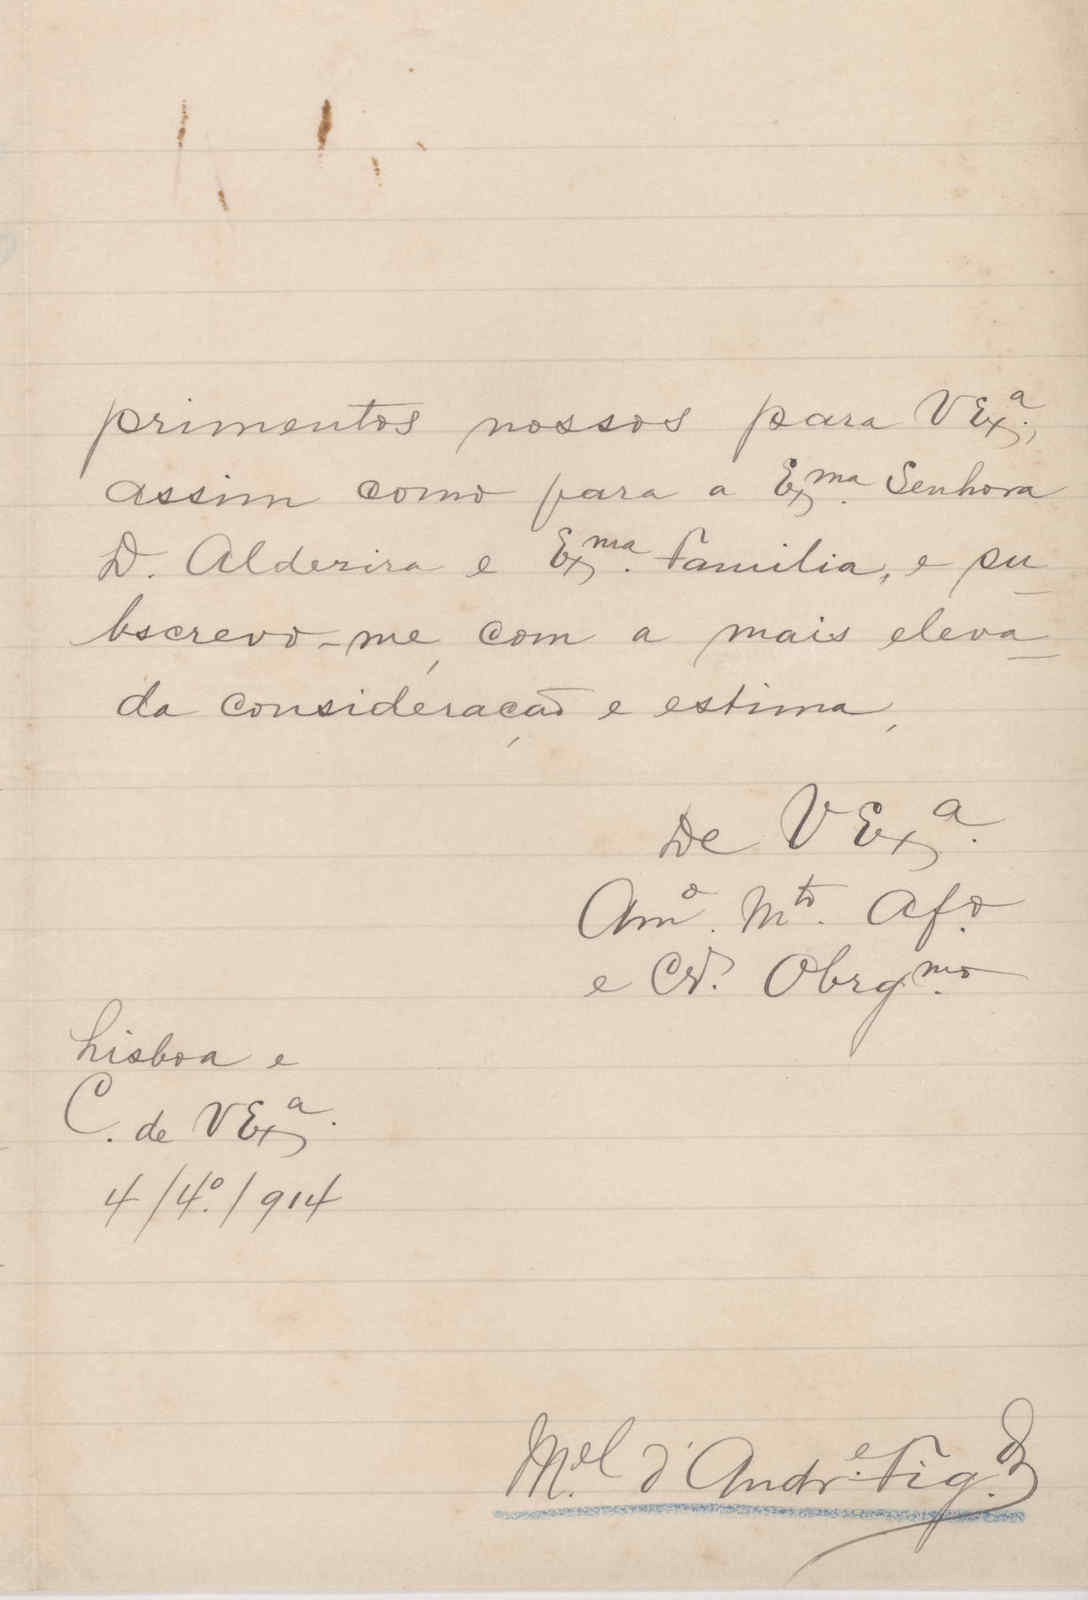 primentos nossos para V Exª.,
assim como para a Exma. Senhora
D. Alderira e Exma. familia, e su_
bscrevo-me, com a mais eleva_
da consideração e estima,
De V Exª.
Amº. Mto. Afº.
e Cr. Obrgmo.
Lisboa e
C. de V Exª.
4/4º./914
M.el d'Andr.e Fig.do